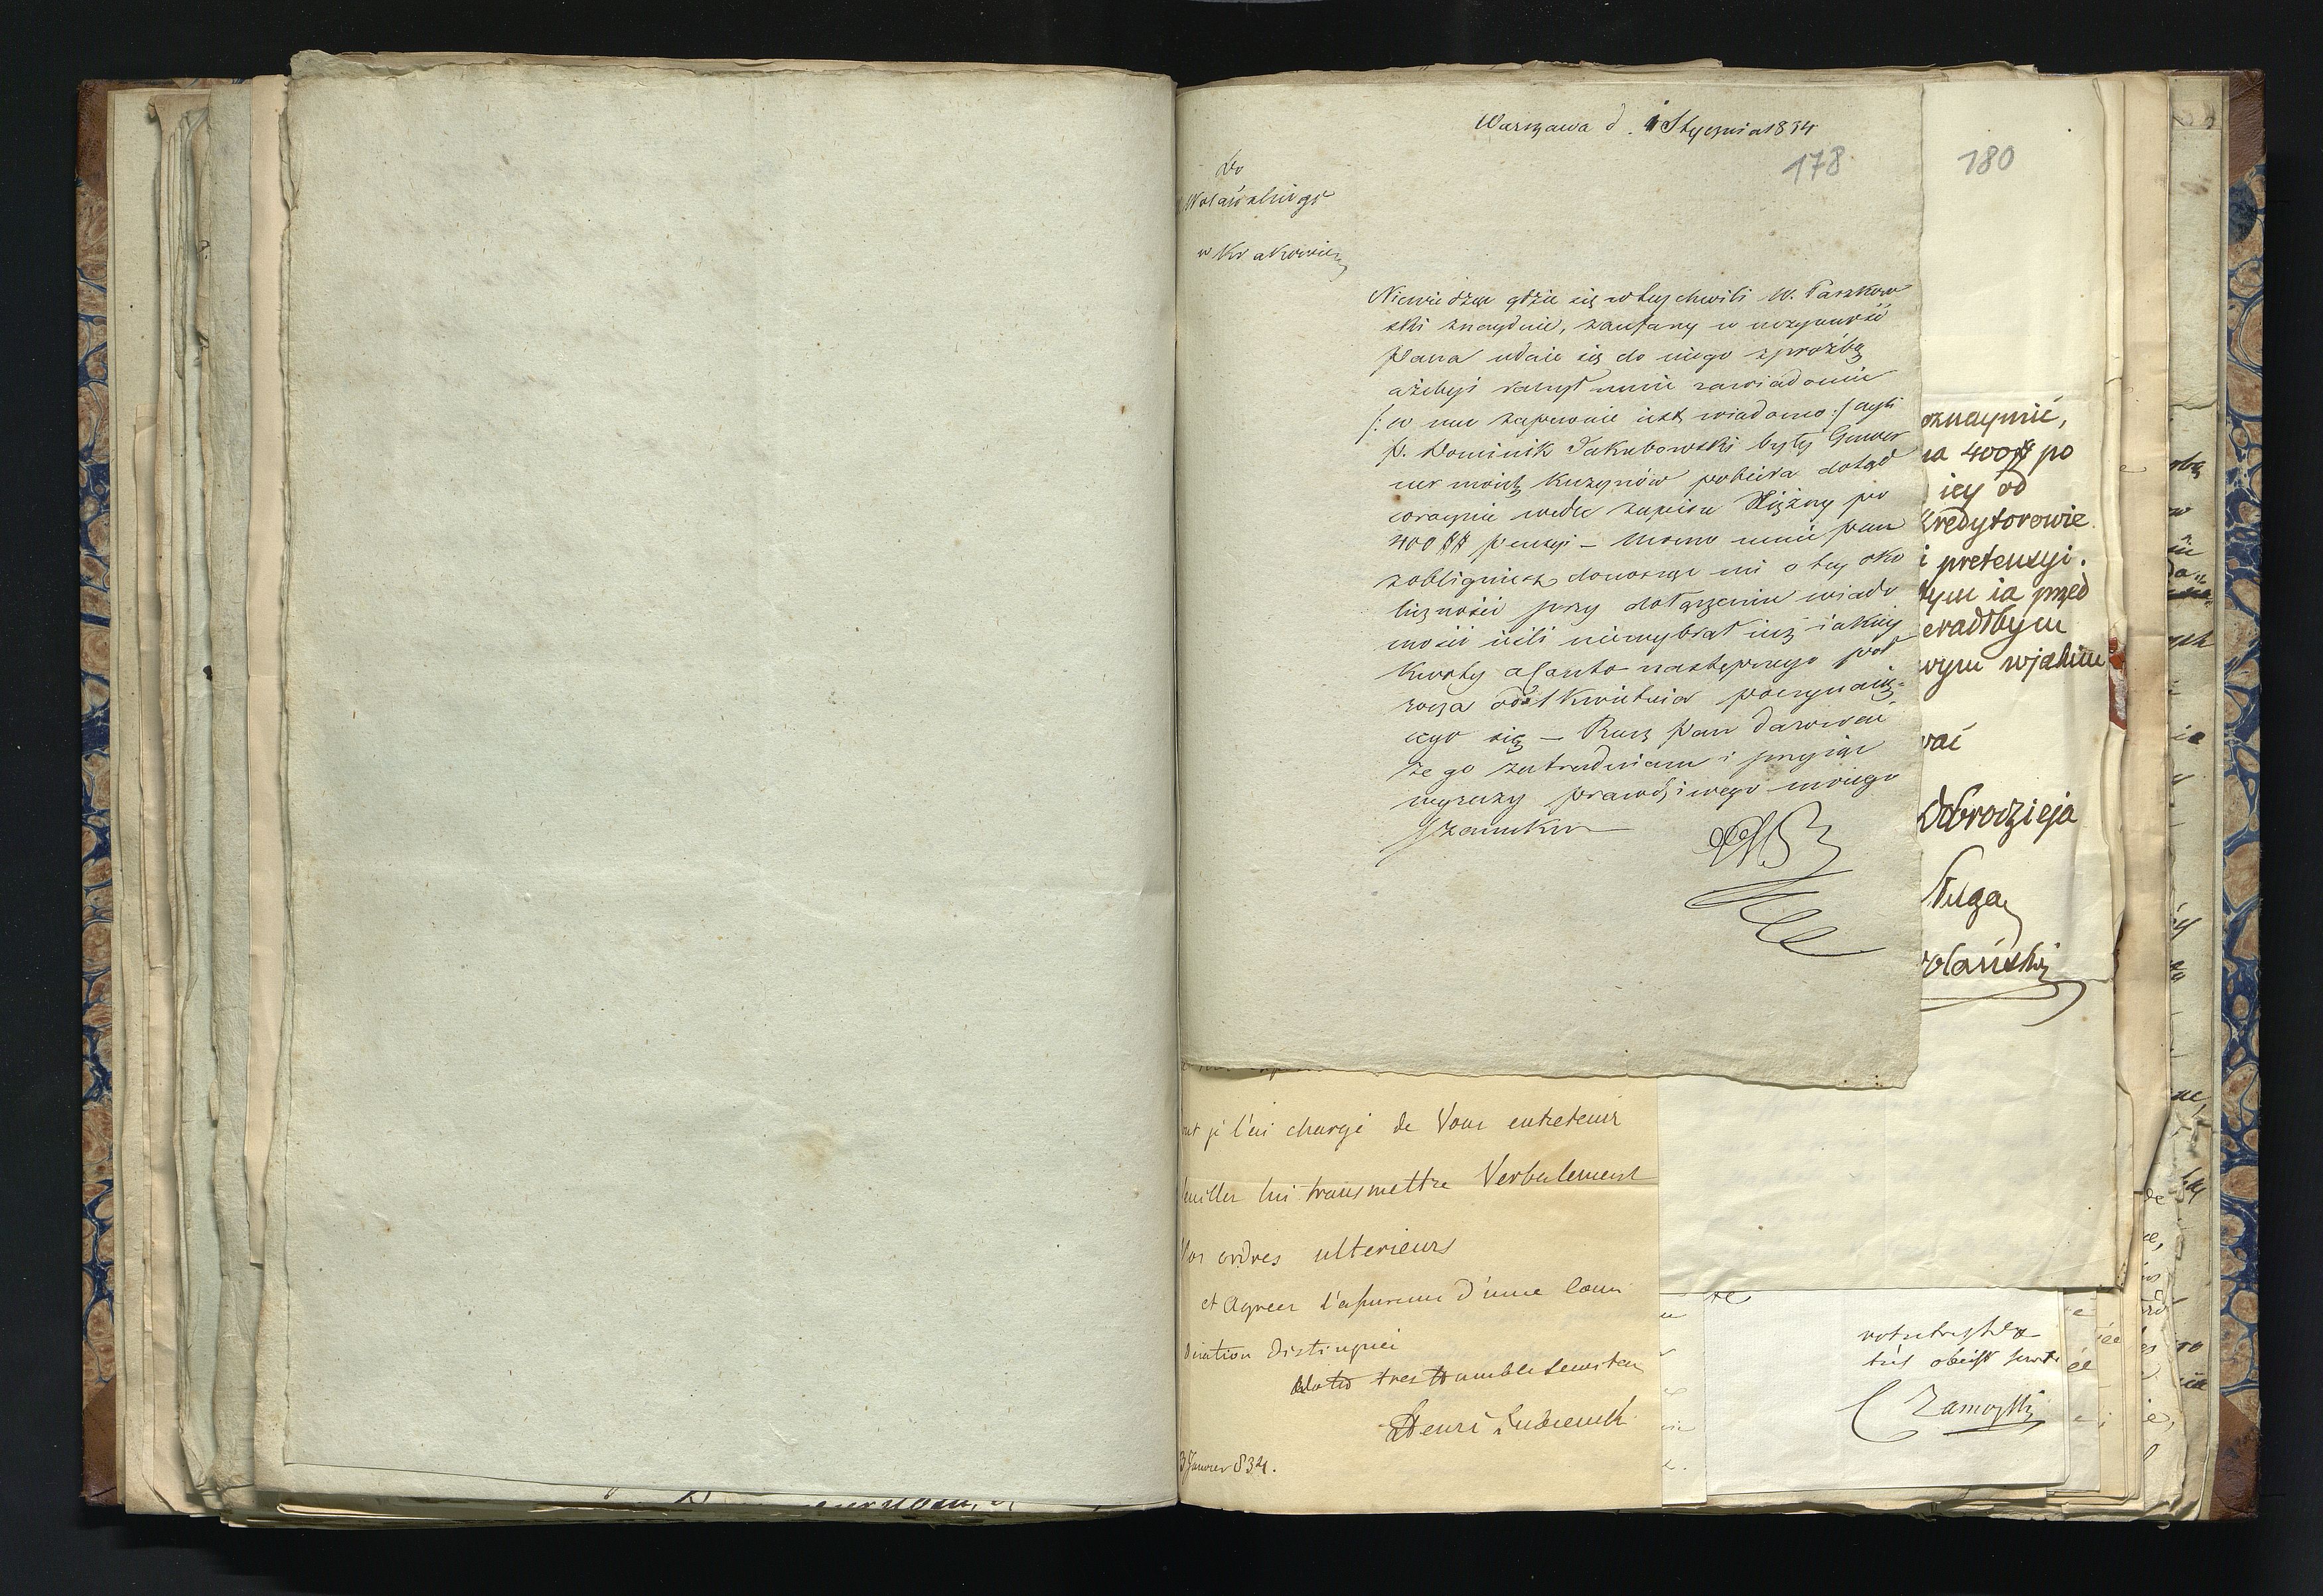 Warszawa d. 1 Stycznia 1834
178
180
Do
Wolańskiego
w Krakowie
Niewiedząc gdzie się w tey chwili W. Paszkow
ski znayduie, zaufany w uczynność
Pana udaie się do niego z prozbą
ażebyś raczył mnie zawiadomić
/: co mu zapewnie iest wiadomo :/ czyli
P. Dominik Jakubowski były Guwer
ner moich Kuzynów pobiera dotąd
corocznie wedle zapisu Xiężny po
400 ## pensyi — Mocno mnie pan
zobligujesz donosząc mi o tey oko
liczności przy dołączeniu wiado
mości ieili niewybrał iuż iakiey
Kwoty a Conto następnego pół
rocza od 1 Kwietnia poczynaią-
cego się — Racz Pan darować
że go zatrudniam i przyiąć
wyrazy prawdziwego moiego
szacunku
oznaymić,
na 400 ## po
iey od
Kredytorowie
i pretensyi.
tym ia przed
eradłbym
wym wjakim
wać
Dobrodzieja
Sługa
olański
ent je l'ai chargé de Vous entretenir
Veuillez lui transmettre Verbalement
Vos ordres ulterieurs
et Agreer l'assurance d'une Consi
deration Distinguée
tres Humble Serviteur
Henri Łubieński
3 Janvier 834.
votre
très obéist servt
C Zamoyski